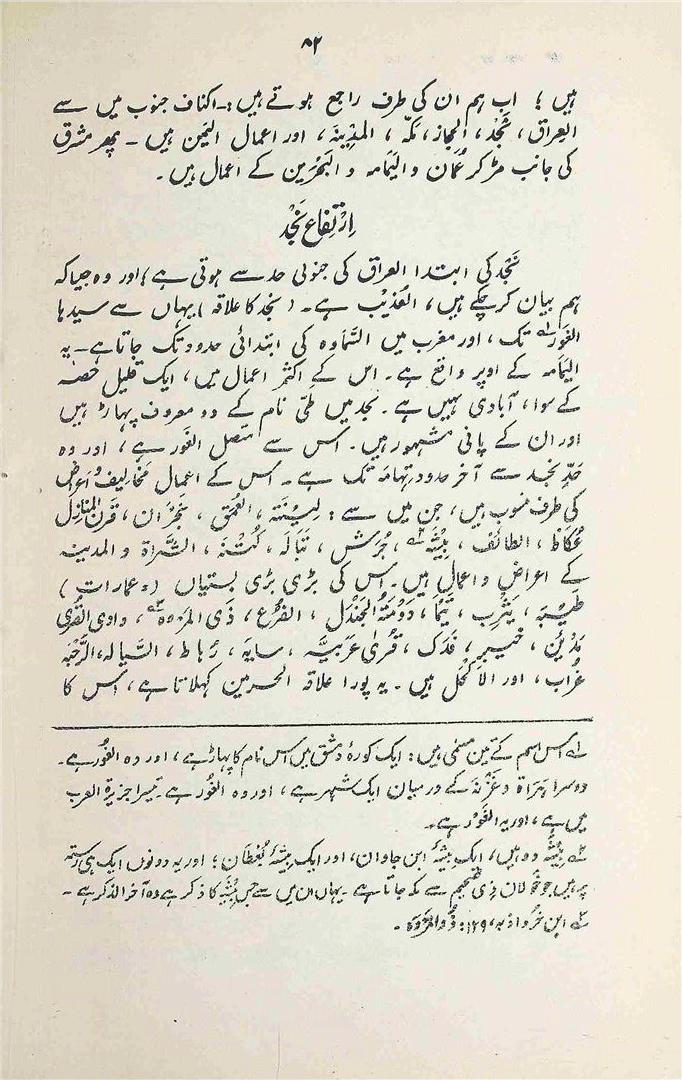 ۵۲
ہیں؛ اب ہم ان کی طرف راجع ہوتے ہیں:۔ اکناف جنوب میں سے
العراق، نَجْد، الحجاز، مکّہ، المدِیْنَہ، اور اعمال الیَمن ہیں۔ پھر مشرق
کی جانب مڑ کر عُمَان و الیَمَامہ و البَحْرَین کے اعمال ہیں۔
اِرْتِفَاعِ نَجْد
نَجْد کی ابتدا العراق کی جنوبی حد سے ہوتی ہے؛ اور وہ جیسا کہ
ہم بیان کر چکے ہیں، العُذَیْب ہے۔ (نجد کا علاقہ) یہاں سے سیدھا
الغَور؎۱ تک، اور مغرب میں السَّمَاوہ کی ابتدائی حدود تک جاتا ہے۔ یہ
الیَمَامہ کے اوپر واقع ہے۔ اس کے اکثر اعمال میں، ایک قلیل حصّہ
کے سوا، آبادی نہیں ہے۔ نجد میں طَیّ نام کے دو معروف پہاڑ ہیں
اور ان کے پانی مشہور ہیں۔ اس سے متصل الغَور ہے، اور وہ
حدِّ نجد سے آخر حدود تِہامَہ تک ہے۔ اس کے اعمال مَخَالِیف و اَعراض
کی طرف منسوب ہیں، جن میں سے: لِیْنَۃ، العُمَق، نَجْرَان، قَرن المَنَازِل
عُکَاظ، الطائف، بِیْشَہ؎۲، جُرَش، تَبَالَہ، کُتْنَہ، السَّرَاۃ و المدینہ
کے اعراض و اعمال ہیں۔ اس کی بڑی بڑی بستیاں (و عمارات)
طَیْبَہ، یَثْرِب، تَیْمَا، دَوْمَۃُ الجَنْدَل، الفُرُع، ذی المَرْوَہ؎۳، وادی القُرٰی
مَدْیَن، خیبر، فَدَک، قُرٰی عَرَبِیَّہ، سایَہ، رُہَاط، السَّیَالہ، الرَّحْبَہ
غُرَاب، اور الاَکْحَل ہیں۔ یہ پورا علاقہ الحرمین کہلاتا ہے، اس کا
؎۱ اس اسم کے تین مسمّٰی ہیں: ایک کورۂ دمشق میں اس نام کا پہاڑ ہے، اور وہ الغَوْر ہے۔
دوسرا ہَرَاۃ و غَزْنَہ کے درمیان ایک شہر ہے، اور وہ الغُوْر ہے۔ تیسرا جزیرۃ العرب
میں ہے، اور یہ الغَوْر ہے۔
؎۲ بِیْشَہ دو ہیں، ایک بِیْشَہ ابن جاوان، اور ایک بِیْشَہ بُعْطَان؛ اور یہ دونوں ایک ہی رستہ
پر ہیں جو خَوْلان ذِی سُحَیم سے مکہ جاتا ہے۔ یہاں ان میں سے جس بِیْشَہ کا ذکر ہے وہ آخر الذکر ہے۔
؎۳ ابن خُرْداذبہ، ۱۲۹: ذُو المَرْوَہ۔